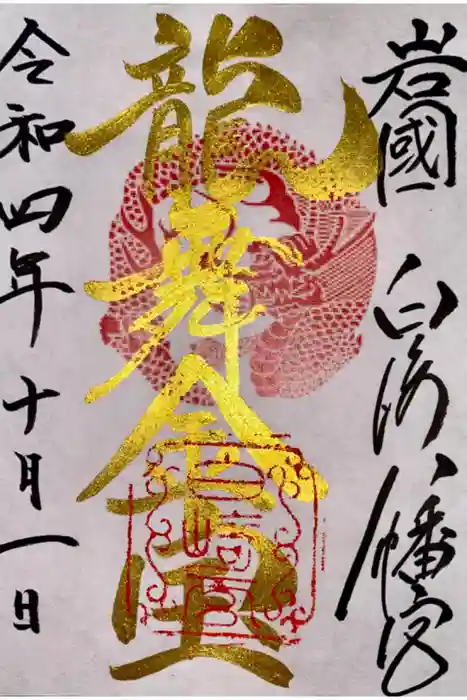 岩國
白崎八幡宮
龍舞金
令和四年十月一日